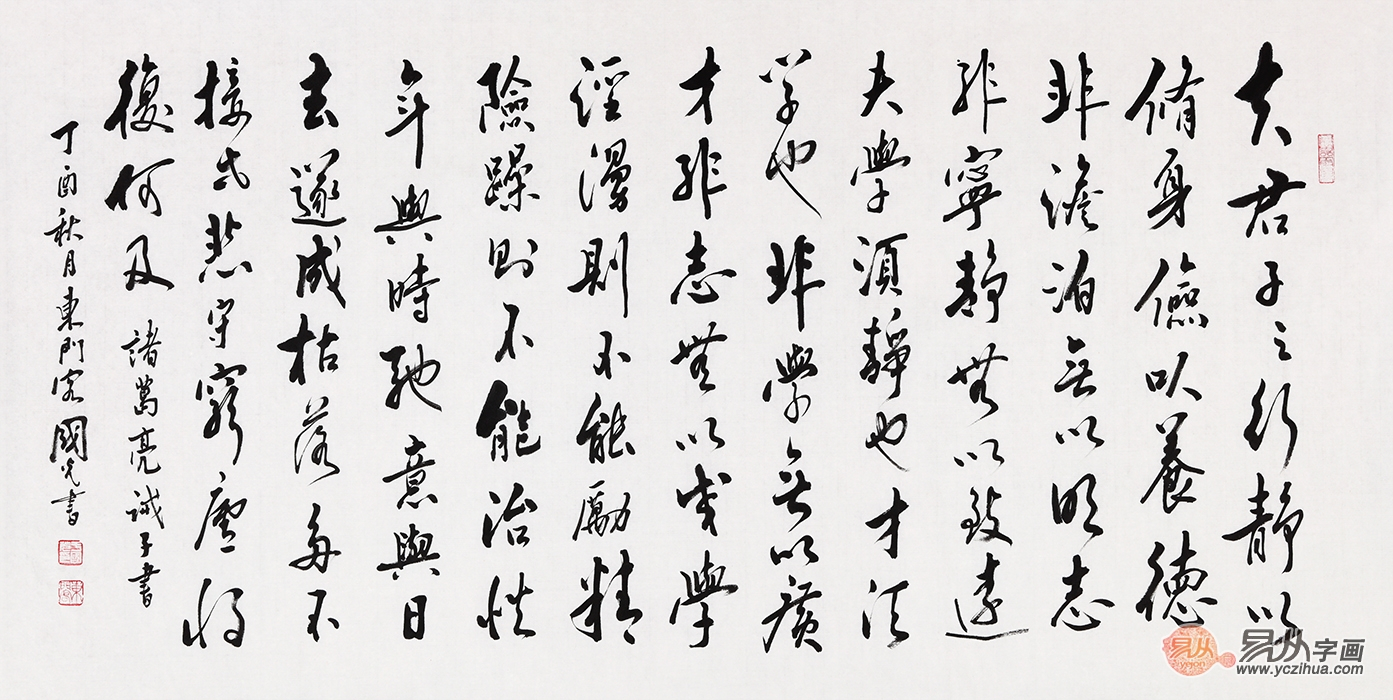 夫君子之行静以
脩身儉以養德
非澹泊無以明志
非寧静無以致遠
夫學須靜也才須
学也非學無以廣
才非志無以成學
淫漫則不能勵精
險躁則不能治性
年與時馳意與日
去遂成枯落多不
接世悲守窮廬将
復何及 諸葛亮誡子書
丁酉秋月東門客國書
易从字画
www.yczihua.com